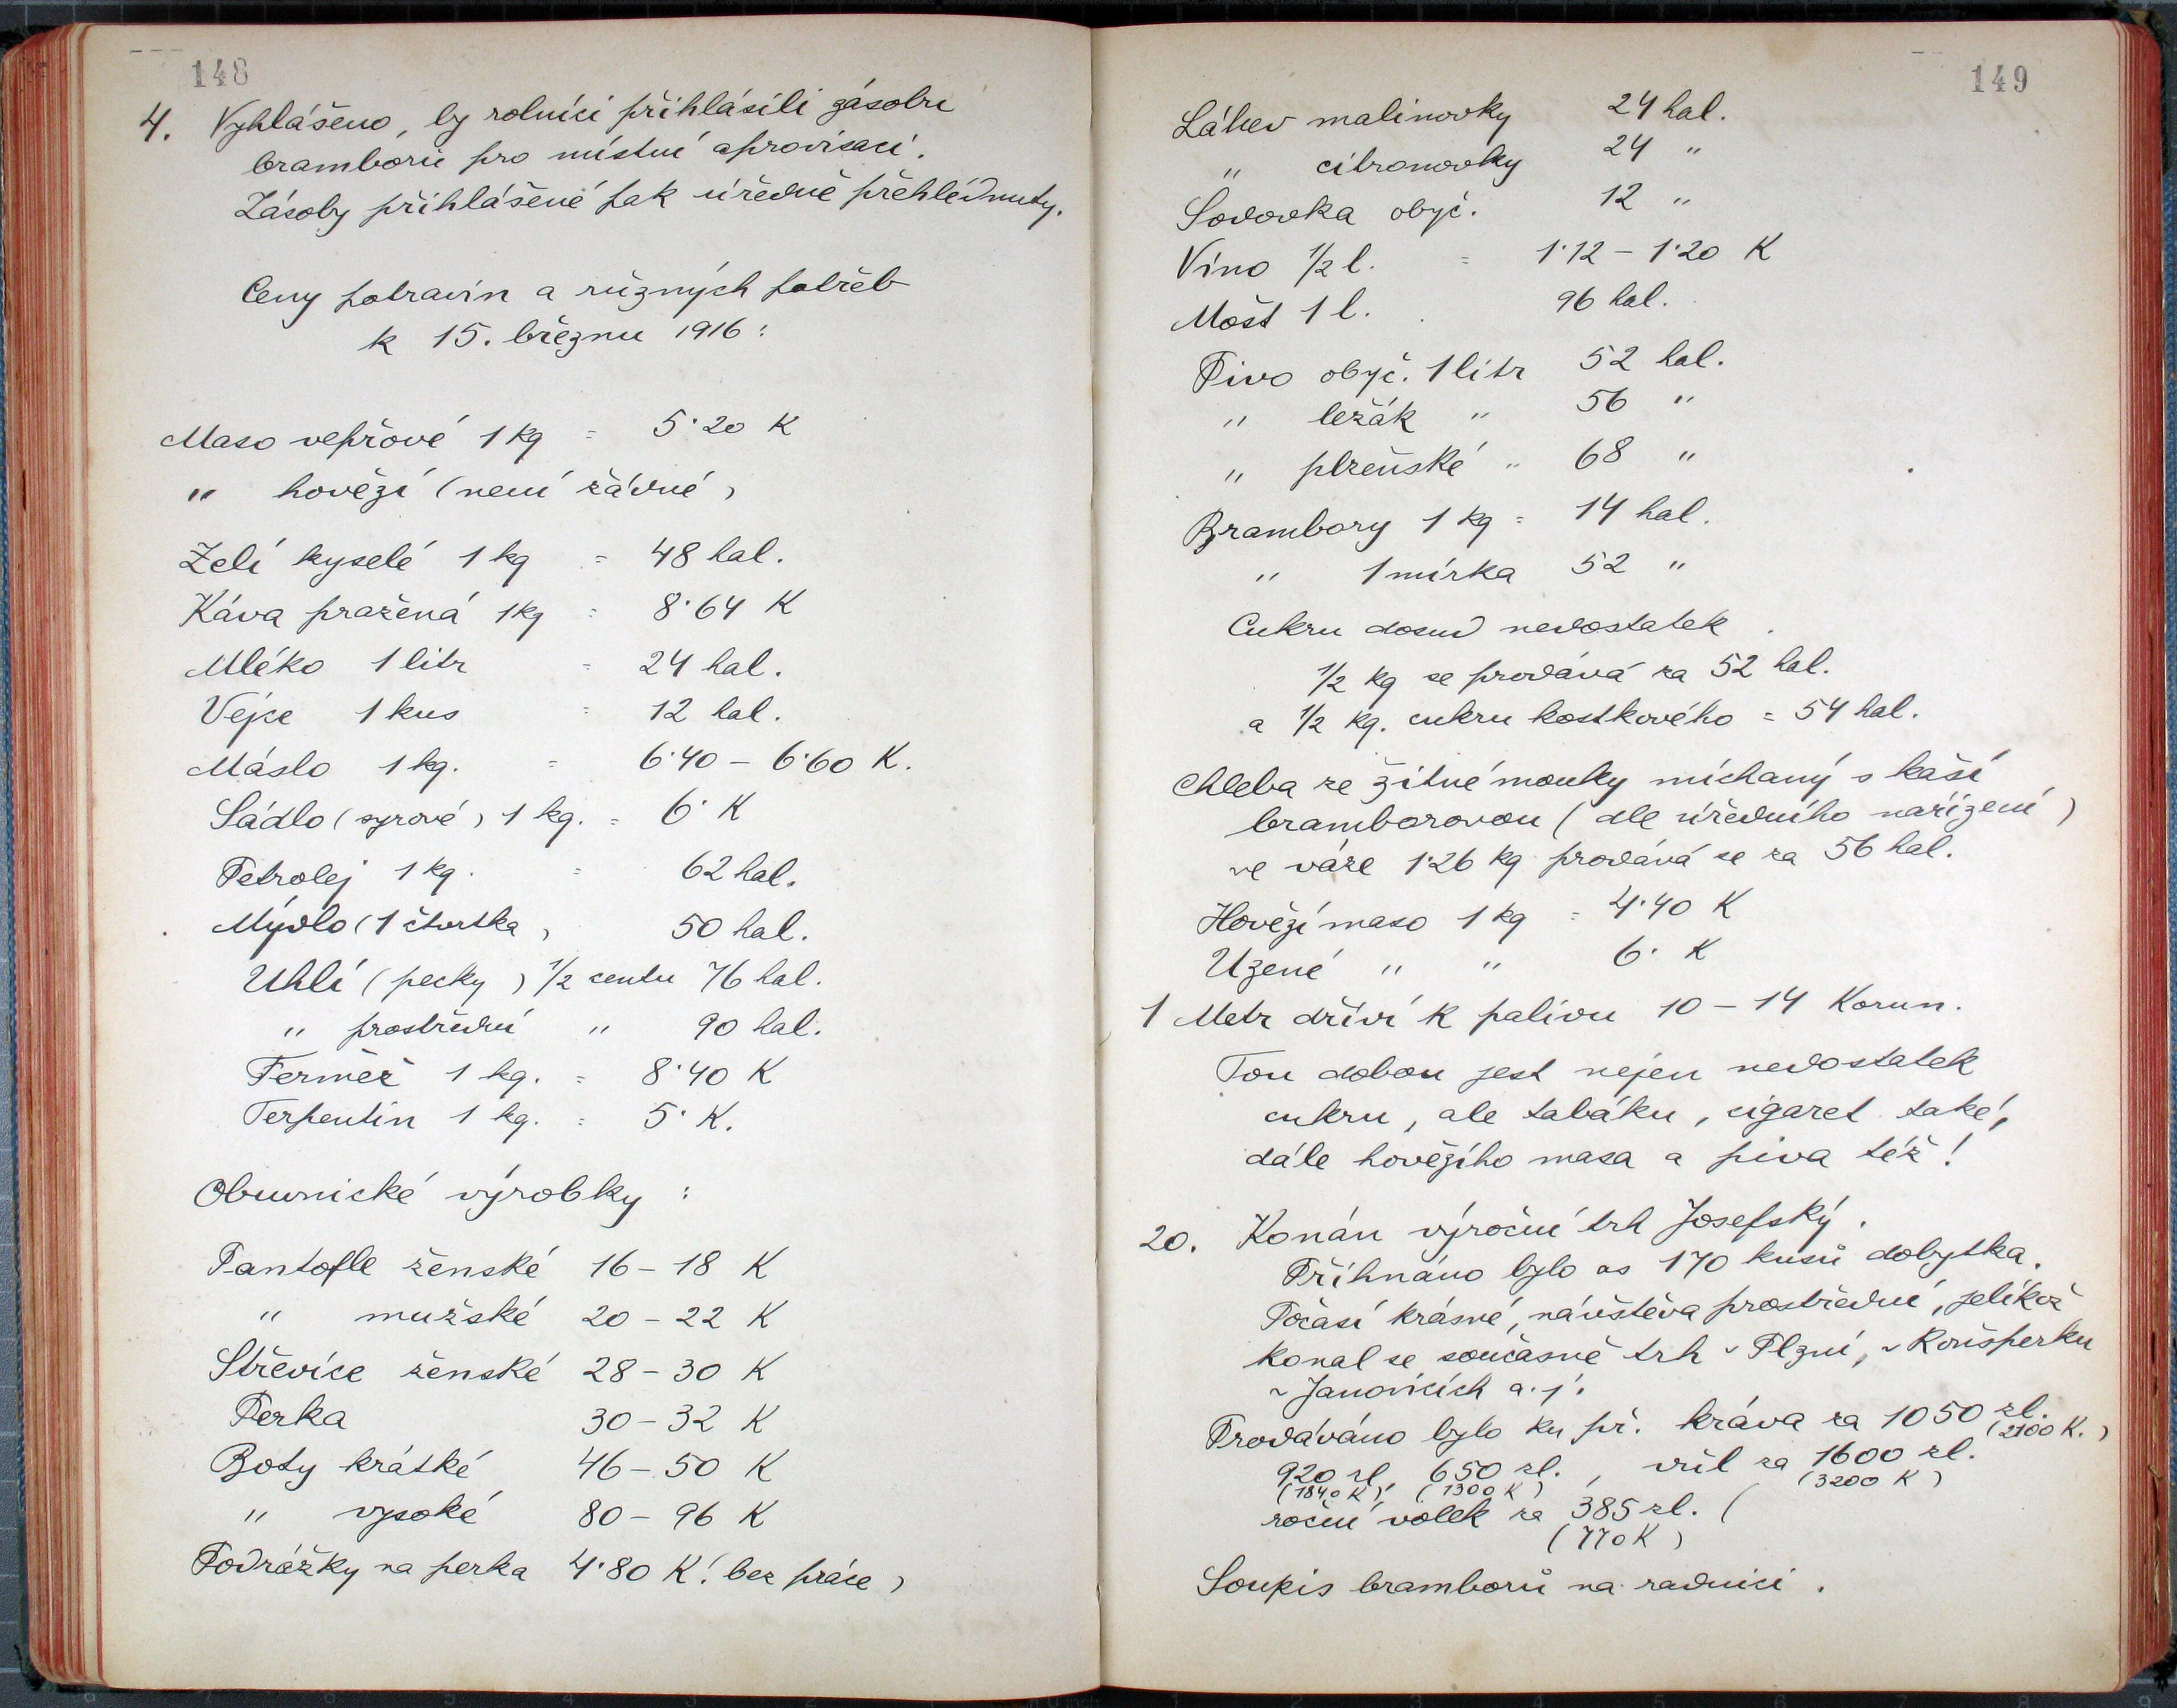 148
4. Vyhlášeno, by rolníci přihlásili zásobu
bramborů pro místní aprovisaci.
Zásoby přihlášené pak úředně přehlédnuty.
Ceny potravin a různých potřeb
k 15. březnu 1916:
Maso vepřové 1 kg = 5·20 K
" hovězí (není žádné)
Zelí kyselé 1 kg = 48 hal.
Káva pražená 1kg = 8·64 K
Mléko 1 litr = 24 hal.
Vejce 1 kus = 12 hal.
Máslo 1 kg. = 6·40 – 6·60 K.
Sádlo (syrové) 1 kg. = 6· K
Petrolej 1 kg. = 62 hal.
Mýdlo (1 čtvrtka) 50 hal.
Uhlí (pecky) 1/2 centu 76 hal.
" prostřední " 90 hal.
Fermež 1 kg. = 8·40 K
Terpentin 1 kg. = 5· K.
Obuvnické výrobky:
Pantofle ženské 16 – 18 K
" mužské 20 – 22 K
Střevíce ženské 28 – 30 K
Perka 30 – 32 K
Boty krátké 46 – 50 K
" vysoké 80 – 96 K
Podrážky na perka 4·80 K! bez práce)
149
Láhev malinovky 24 hal.
" citronovky 24 "
Sodovka obyč. 12 "
Víno 1/2 l. = 1·12 – 1·20 K
Mošt 1 l. 96 hal.
Pivo obyč. 1 litr 52 hal.
" ležák " 56 "
" plzeňské " 68 "
Brambory 1 kg = 14 hal.
" 1 mírka 52 "
Cukru dosud nedostatek.
1/2 kg se prodává za 52 hal.
a 1/2 kg. cukru kostkového = 54 hal.
Chleba ze žitné mouky míchaný s kaší
bramborovou (dle úředního nařízení)
ve váze 1·26 kg prodává se za 56 hal.
Hovězí maso 1 kg = 4·40 K
Uzené " " 6· K
1 Metr dříví k palivu 10 – 14 Korun.
Tou dobou jest nejen nedostatek
cukru, ale tabáku, cigaret také,
dále hovězího masa a piva též!
20. Konán výroční trh Josefský.
Přihnáno bylo as 170 kusů dobytka.
Počasí krásné, návštěva prostřední, jelikož
konal se současně trh v Plzni, v Ronšperku
v Janovicích a. j.
Prodáváno bylo ku př. kráva za 1050 zl.
(2100 K.)
920 zl, 650 zl., vůl za 1600 zl.
(1840 K) (1300 K) (3200 K)
roční volek za 385 zl. (
(770 K)
Soupis bramborů na radnici.